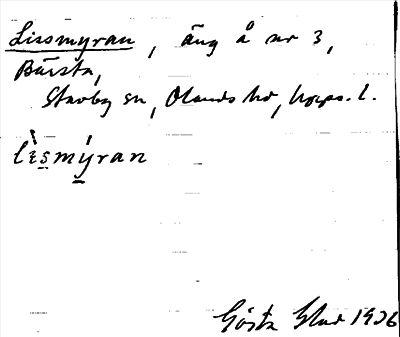 Lissmyran, äng å nr 3,
Bärsta,
Stavby sn, Olands hd, Upps. l.
lèsmýran
Gösta Blad 1936